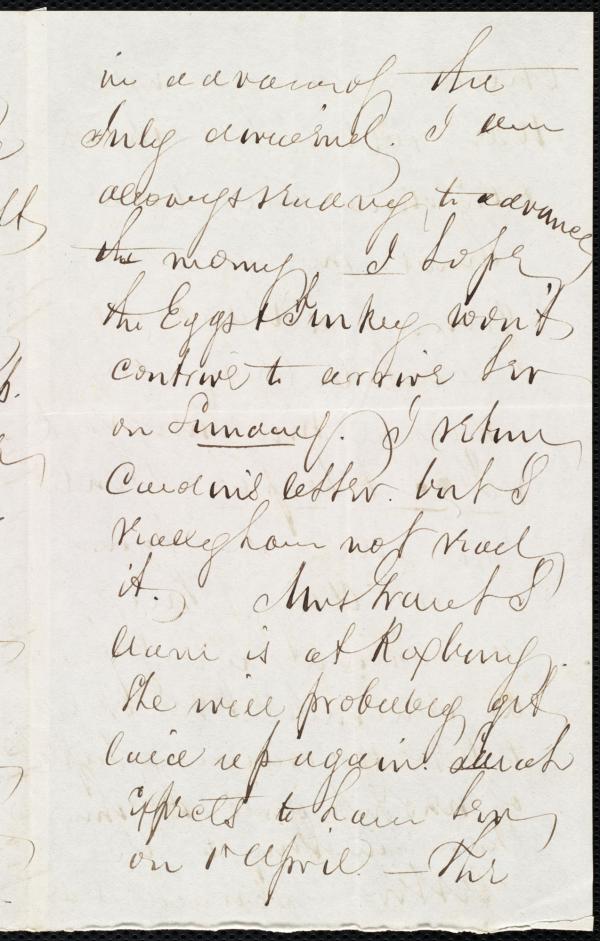 in advance of the
July dividend. I am
always ready to advance
the money I hope
the Eggs & Turkey won't
contrive to arrive here
on Sunday. I return
letter. but I
really have not read
it. Mrs Grant I
learn is at Roxbury.
She will probably get
laid up again. Sarah
Expects to leave here
on 1st April. — The